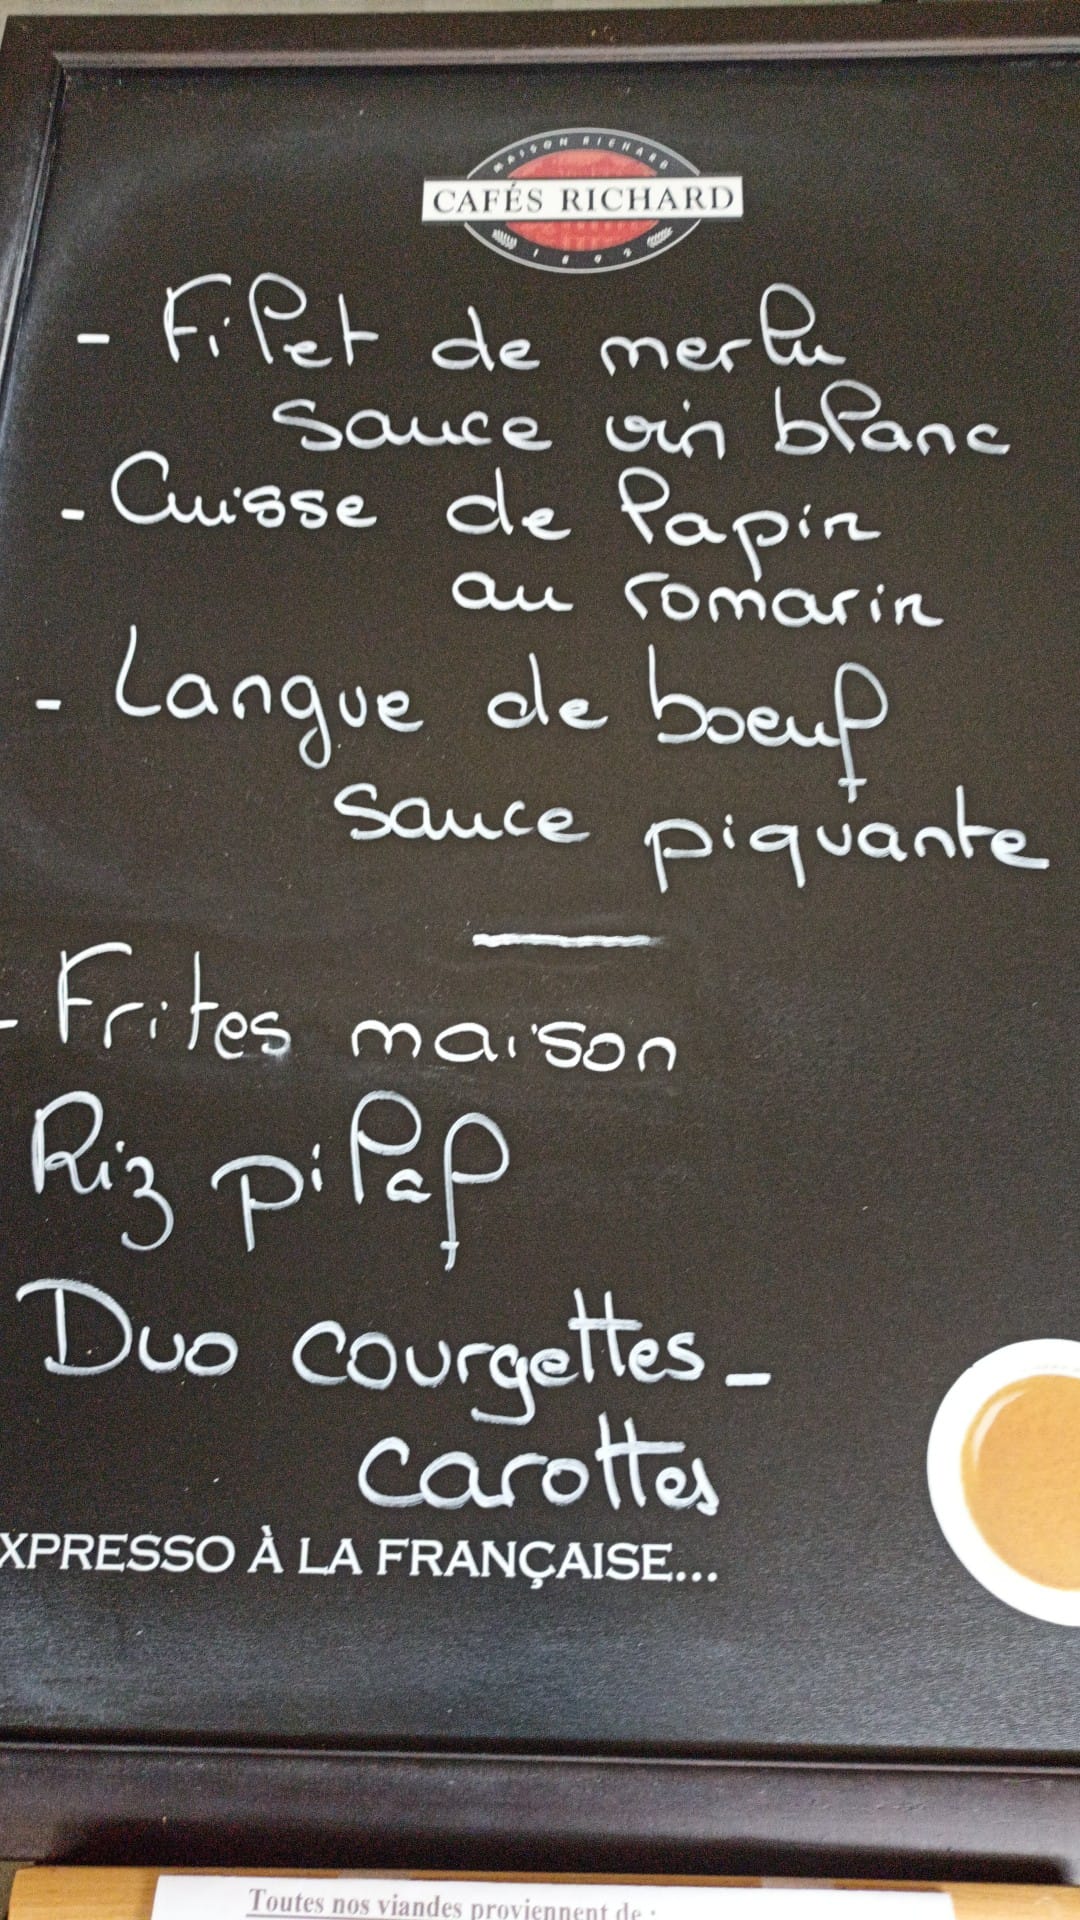 MAISON RICHARD
CAFÉS RICHARD
1892
- Filet de merlu
sauce vin blanc
- Cuisse de lapin
au romarin
- Langue de boeuf
sauce piquante
- Frites maison
Riz pilaf
Duo courgettes -
carottes
XPRESSO À LA FRANÇAISE...
Toutes nos viandes proviennent de :